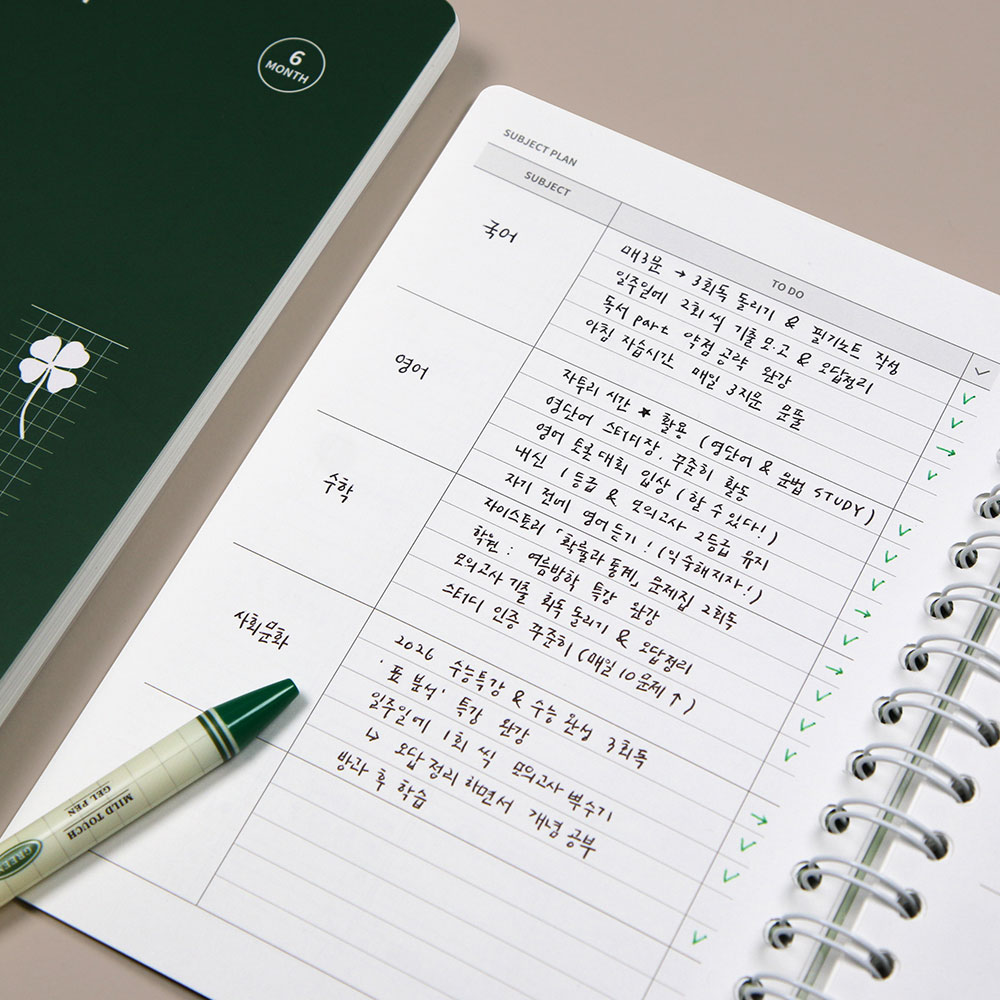 6
MONTH
SUBJECT PLAN
SUBJECT
TO DO
국어
매3문 → 3회독 돌리기 & 필기노트 작성
일주일에 2회씩 기출모.고 & 오답정리
독서 part 약점 공략 완강
아침 자습시간 매일 3지문 문풀
영어
자투리 시간 ★ 활용 (영단어 & 문법 STUDY)
영단어 스터디장. 꾸준히 활동
영어 토론대회 입상 (할 수 있다!)
내신 1등급 & 모의고사 2등급 유지
자기 전에 영어듣기! (익숙해지자!)
수학
자이스토리 「확률과 통계」 문제집 2회독
학원 : 여름방학 특강 완강
모의고사 기출 회독 돌리기 & 오답정리
스터디 인증 꾸준히 (매일 10문제↑)
사회문화
2026 수능특강 & 수능완성 3회독
'표 분석' 특강 완강
일주일에 1회씩 모의고사 뿌수기
↳ 오답정리하면서 개념 공부
방과 후 학습
MILD TOUCH
GEL PEN
GREEN